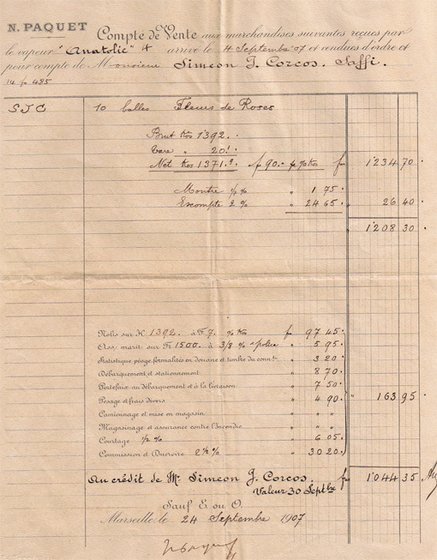 N. PAQUET
Compte de Vente aux marchandises suivantes reçues par
le vapeur "Anatolie" arrivé le 4 Septembre 07 et vendues d'ordre et
pour compte de Monsieur Simeon J. Corcos. Saffi.
485
SJC 10 balles Fleurs de Roses
Brut Kos 1392.
Tare " 20.
Net Kos 1371. 90. f 1234 70
Montre % " 1 75
Escompte 2% " 24 65 " 26 40
1208 30
Nolis sur K 1392. à F 7. % Ko f 97 45
Ass. marit sur Fr 1500. à 3/8 % police " 5 95
Statistique, péage, formalités en douane et timbre du connt " 3 20
Débarquement et stationnement " 8 70
Portefaix au débarquement et à la livraison " 7 50
Pesage et frais divers " 4 90 " 163 95
Camionnage et mise en magasin " "
Magasinage et assurance contre l'Incendie " "
Courtage ½ % " 6 05
Commission et Ducroire 2½ % " 30 20
Au crédit de Mr. Simeon J. Corcos. f 1044 35
Valeur 30 Septbre
Sauf E. ou O.
Marseille le 24 Septembre 1907